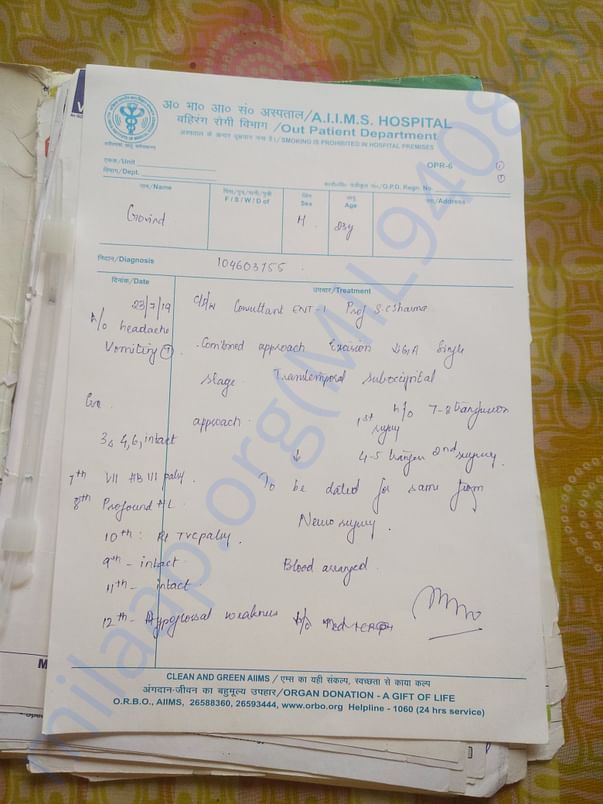 अ० भा० आ० सं० अस्पताल/A.I.I.M.S. HOSPITAL
बहिरंग रोगी विभाग/Out Patient Department
अस्पताल के अन्दर धूम्रपान मना है। / SMOKING IS PROHIBITED IN HOSPITAL PREMISES
OPR-6
एकक/Unit
विभाग/Dept.
O.P.D. Regn. No.
नाम/Name
F / S / W / D of
लिंग
Sex
आयु
Age
पता/Address
Govind
M
23y
निदान/Diagnosis
104603155
दिनांक/Date
उपचार/Treatment
23/7/19
Consultant ENT-1 Prof S.C Sharma
h/o headache
Vomiting
Combined approach Excision Single
stage Transtemporal suboccipital
approach
h/o 7-8 transfusion
1st surgery
3, 4, 6, intact
↓
4-5 2nd surgery
7th VII HB III palsy
To be dated for same from
8th Profound HL
Neuro surgery.
10th: Rt TVC palsy.
9th - intact
Blood arranged.
11th - intact.
12th - Hypoglossal weakness
CLEAN AND GREEN AIIMS / एम्स का यही संकल्प, स्वच्छता से काया कल्प
अंगदान-जीवन का बहुमूल्य उपहार/ORGAN DONATION - A GIFT OF LIFE
O.R.B.O., AIIMS, 26588360, 26593444, www.orbo.org Helpline - 1060 (24 hrs service)
milaap.org(MIL9408